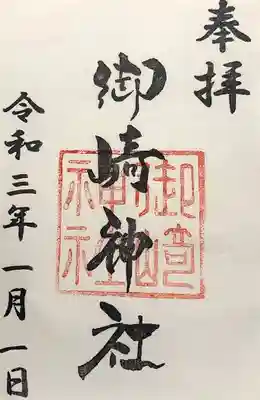 奉拝
御崎神社
御崎神社
令和三年一月一日